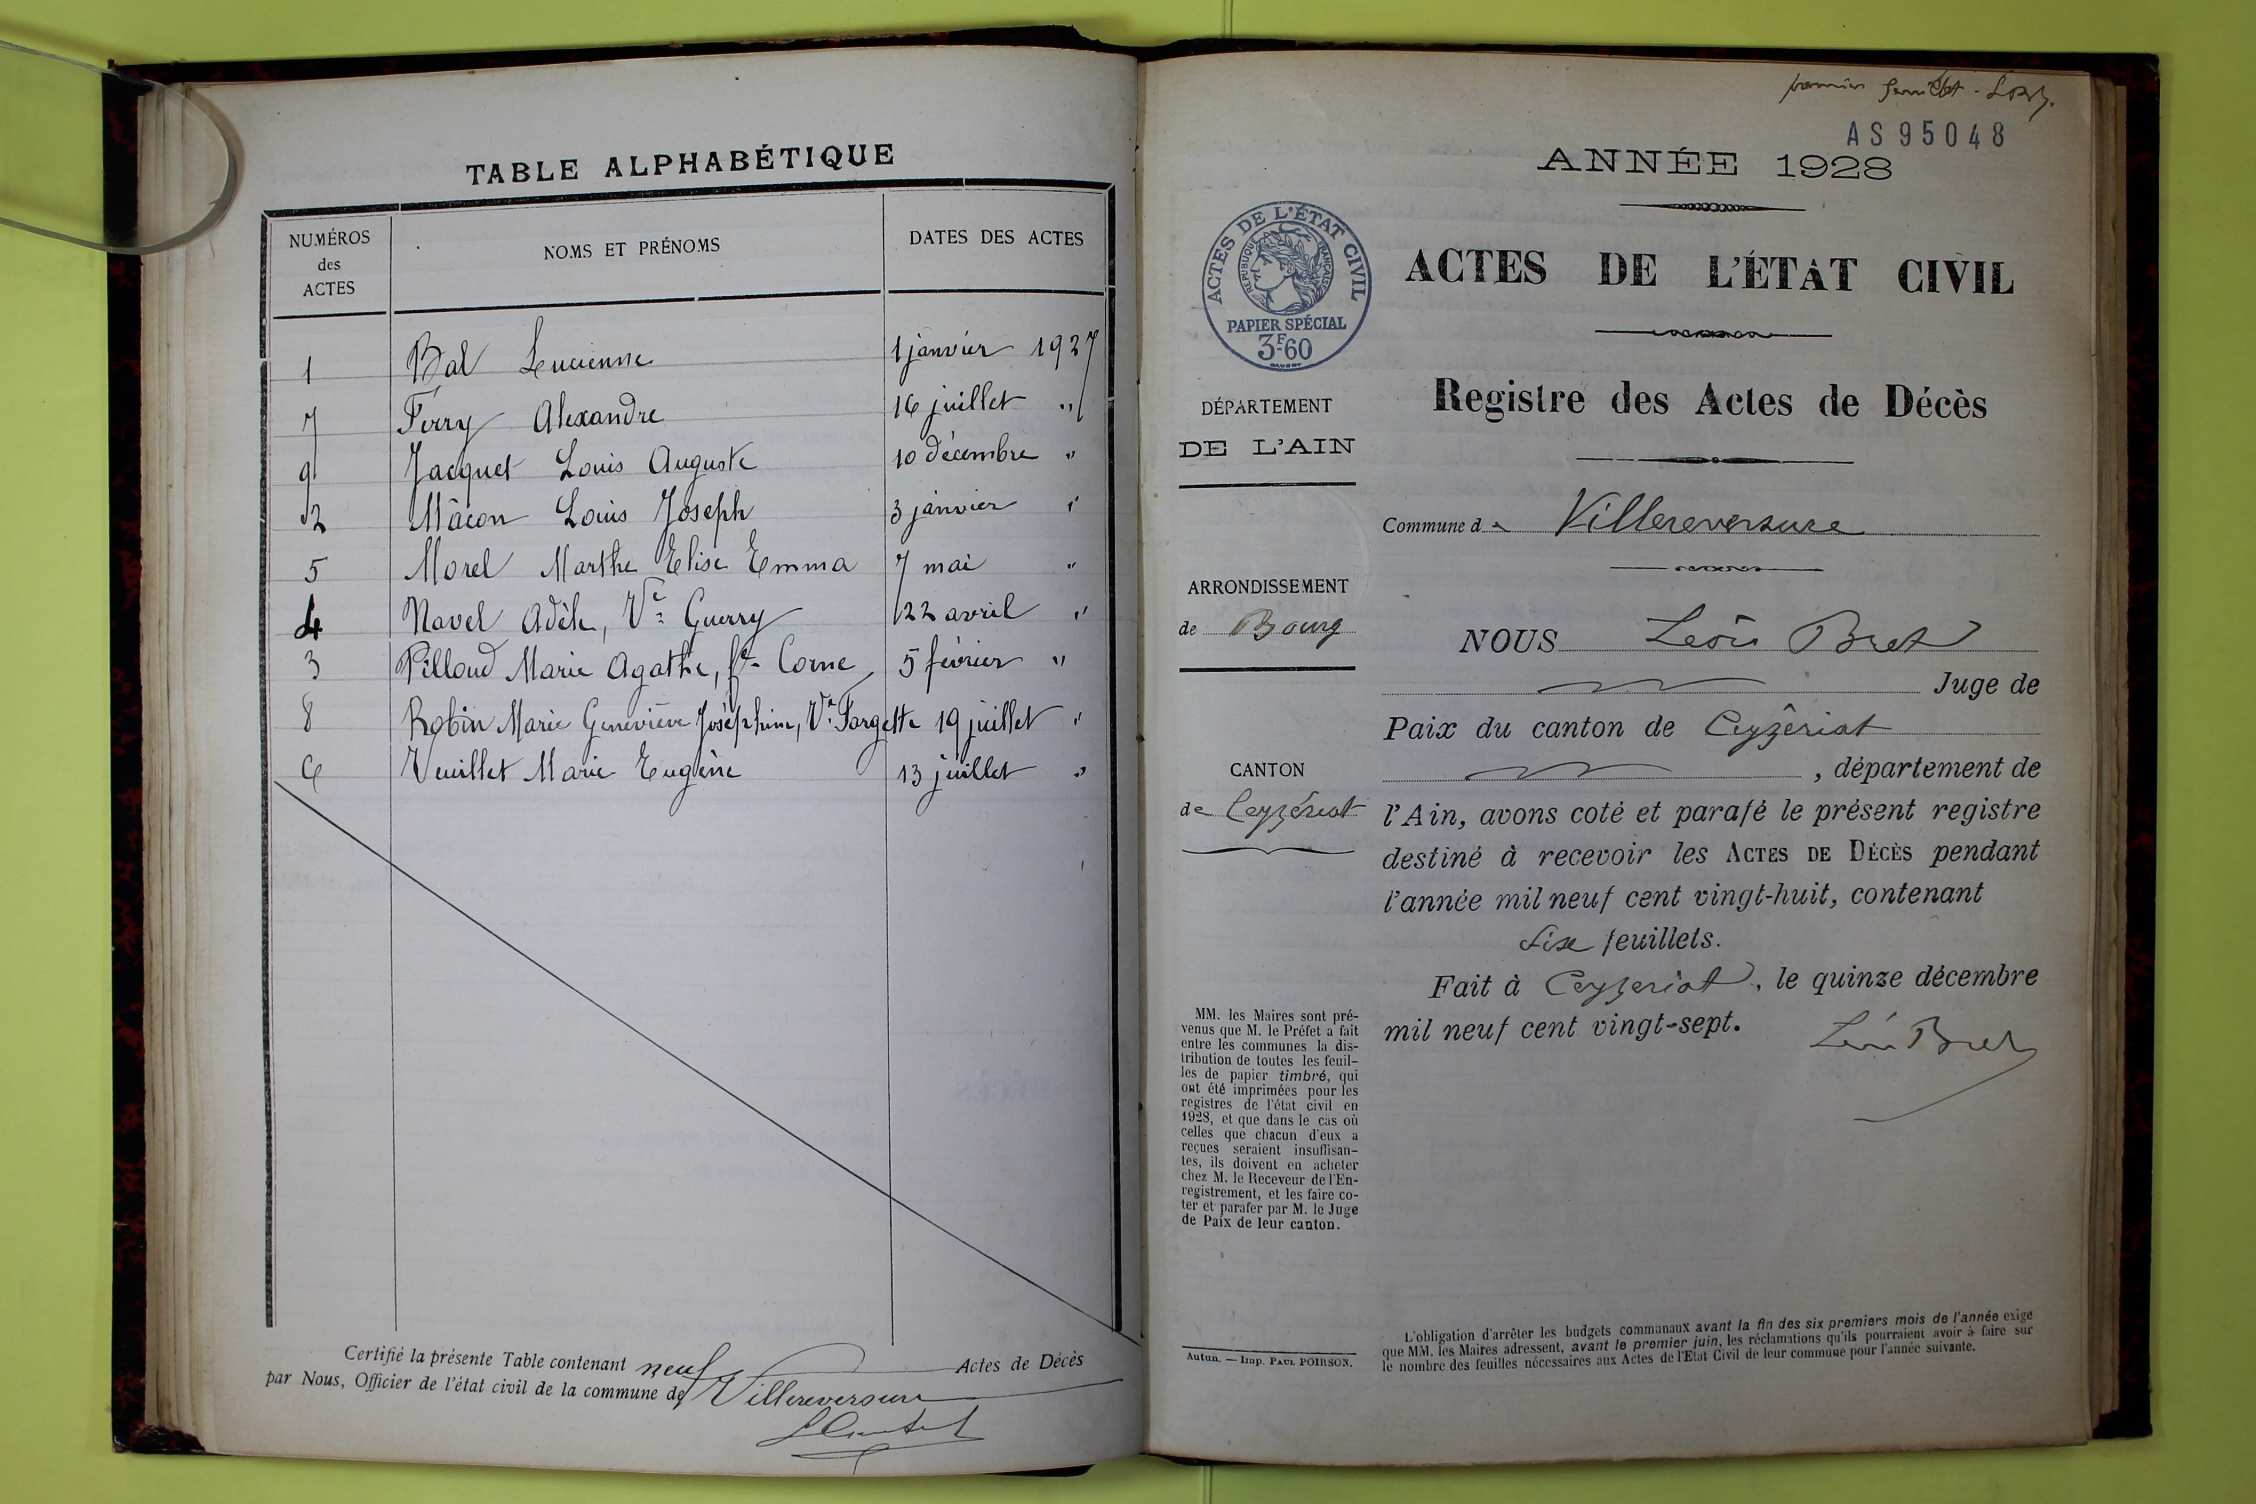 TABLE ALPHABÉTIQUE
NUMÉROS
des
ACTES
NOMS ET PRÉNOMS
DATES DES ACTES
1 Bal Lucienne 1 janvier 1927
7 Ferry Alexandre 16 juillet "
9 Jacquet Louis Auguste 10 décembre "
2 Mâcon Louis Joseph 3 janvier "
5 Morel Marthe Elise Emma 7 mai "
4 Navel Adèle, Ve Guerry 22 avril "
3 Pilloud Marie Agathe, fe Corne 5 février "
8 Robin Marie Geneviève Joséphine, Ve Sorgette 19 juillet "
6 Vuillet Marie Eugène 13 juillet "
Certifié la présente Table contenant neuf Actes de Décès
par Nous, Officier de l'état civil de la commune de Villereversure
premier feuillet -
AS95048
ANNÉE 1928
ACTES DE L'ÉTAT CIVIL
RÉPUBLIQUE FRANÇAISE
PAPIER SPÉCIAL
3F60
ACTES DE L'ÉTAT CIVIL
Registre des Actes de Décès
DÉPARTEMENT
DE L'AIN
ARRONDISSEMENT
de Bourg
CANTON
de Ceyzériat
MM. les Maires sont pré-
venus que M. le Préfet a fait
entre les communes la dis-
tribution de toutes les feuil-
les de papier timbré, qui
ont été imprimées pour les
registres de l'état civil en
1928, et que dans le cas où
celles que chacun d'eux a
reçues seraient insuffisan-
tes, ils doivent en acheter
chez M. le Receveur de l'En-
registrement, et les faire co-
ter et parafer par M. le Juge
de Paix de leur canton.
Autun. — Imp. PAUL POIRSON.
Commune de Villereversure
NOUS Léon Bret
Juge de
Paix du canton de Ceyzériat
, département de
l'Ain, avons coté et parafé le présent registre
destiné à recevoir les ACTES DE DÉCÈS pendant
l'année mil neuf cent vingt-huit, contenant
six feuillets.
Fait à Ceyzeriat, le quinze décembre
mil neuf cent vingt-sept.
Léon Bret
L'obligation d'arrêter les budgets communaux avant la fin des six premiers mois de l'année exige
que MM. les Maires adressent, avant le premier juin, les réclamations qu'ils pourraient avoir à faire sur
le nombre des feuilles nécessaires aux Actes de l'Etat Civil de leur commune pour l'année suivante.